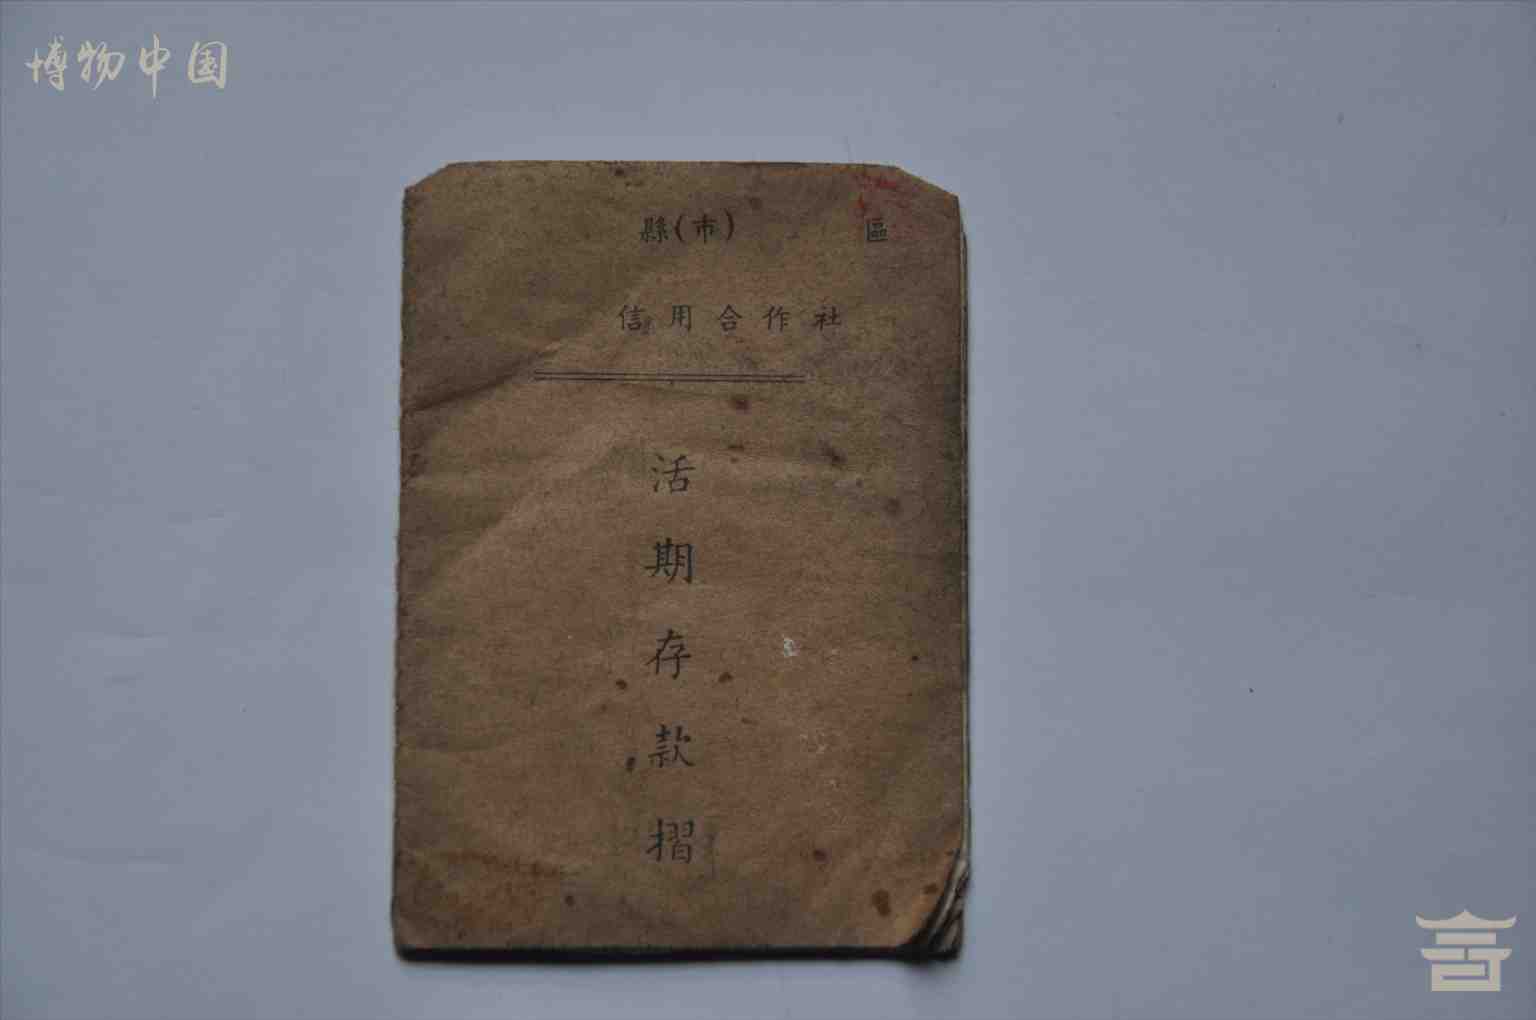 博物中国
縣(市) 區
信用合作社
活期存款摺